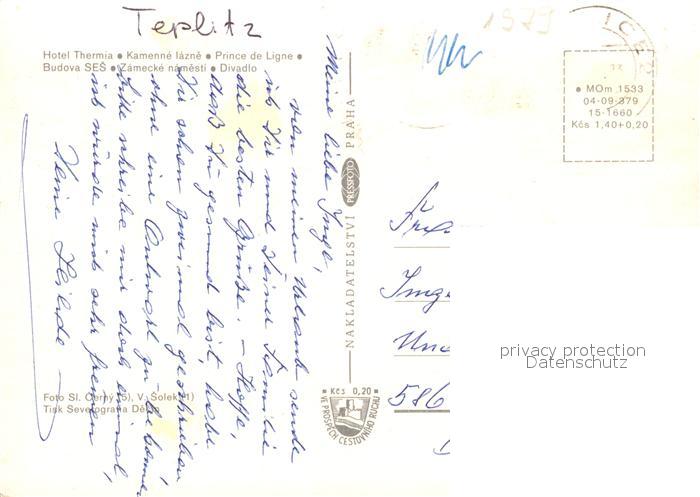 Teplitz
1979
Hotel Thermia • Kamenné lázně • Prince de Ligne •
Budova SEŠ • Zámecké náměstí • Divadlo
Meine liebe Inge,
von meinem Urlaub sende
ich Dir und Deiner Familie
die besten Grüße. – Hoffe,
daß Du gesund bist, habe
Dir schon zweimal geschrieben
ohne eine Antwort zu bekommen
bitte schreibe mir doch einmal,
ich würde mich sehr freuen
Deine
Foto Sl. Černý (5), V. Šolek (1)
Tisk Severografia Děčín
NAKLADATELSTVÍ PRESSFOTO PRAHA
Kčs 0,20
VE PROSPĚCH CESTOVNÍHO RUCHU
• MOm 1533
04-09-379
15-1660
Kčs 1,40+0,20
Inge
586
privacy protection
Datenschutz